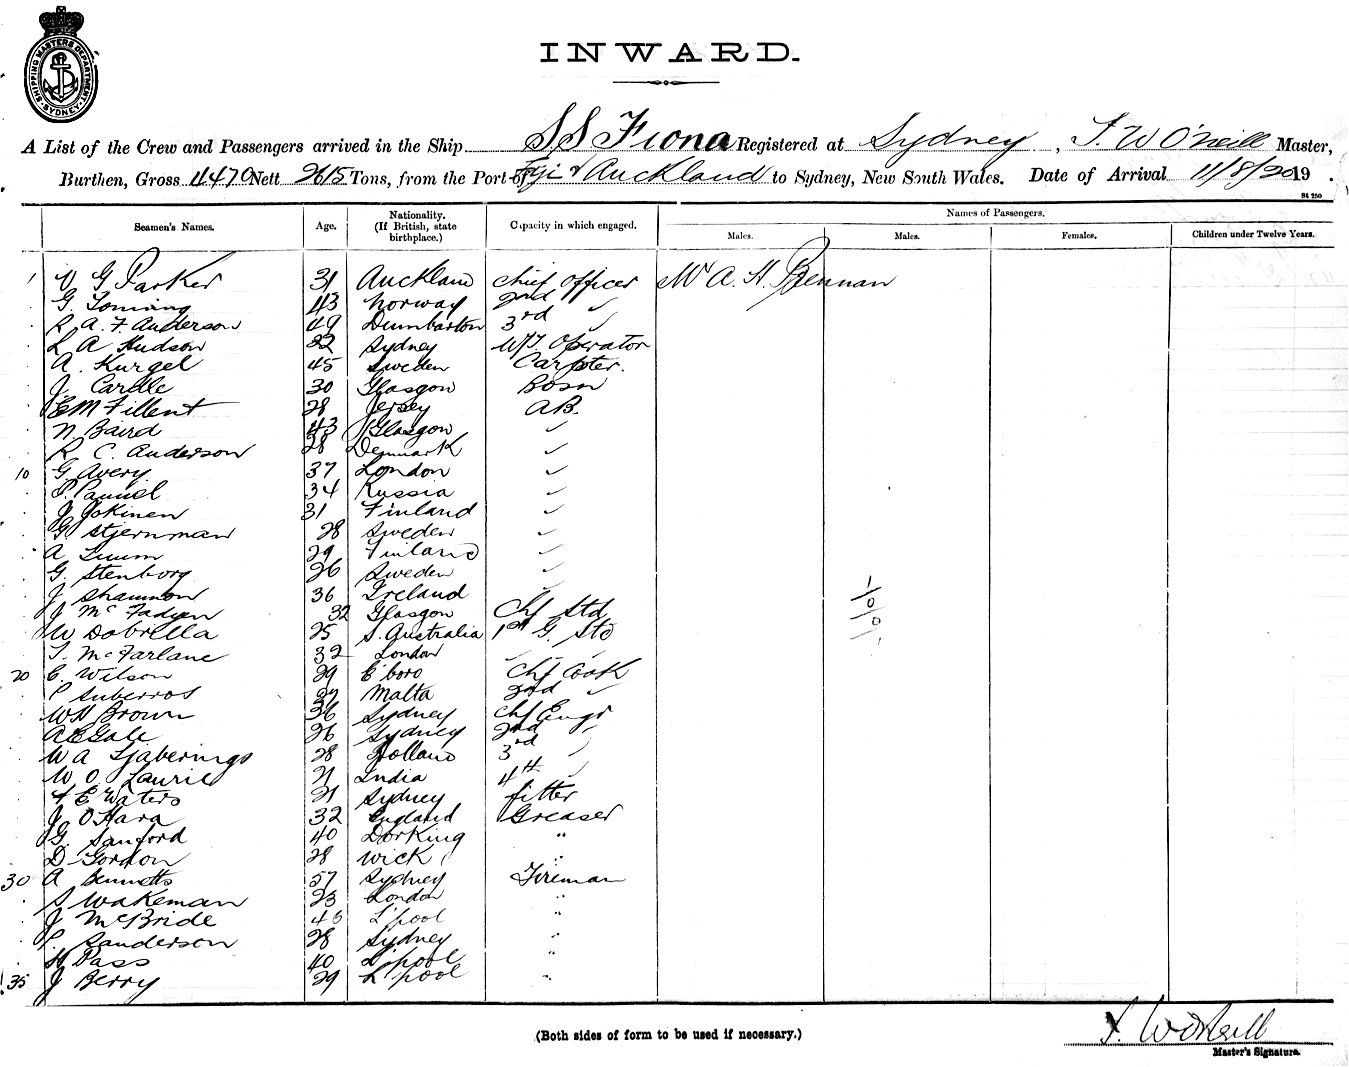 SHIPPING MASTERS DEPARTMENT SYDNEY
INWARD.
A List of the Crew and Passengers arrived in the Ship SS Fiona Registered at Sydney, T. W O'Neill Master,
Burthen, Gross Nett 2615 Tons, from the Port of Fiji & Auckland to Sydney, New South Wales. Date of Arrival 11/8/20 19 .
84 250
Seamen's Names. Age. Nationality. (If British, state birthplace.) Capacity in which engaged. Names of Passengers.
Males. Males. Females. Children under Twelve Years.
1 V G Parker 31 Aucklan Chief Officer Mr A. H. Brennan
G. 43 Norway 2nd "
R A. F. Anderson 49 Dumbarton 3rd "
L A Hudson 22 Sydney W/T. Operator
A. Kurgel 45 Sweden Carpter.
J. Cardle 30 Glasgow Bosn
E M Fillent 28 Jersey A.B.
N. Baird 43 Glasgow "
R C. Anderson 28 Denmark "
10 G. Avery 37 London "
P. 34 Russia "
J Jokinen 31 Finland "
G. Stjernman 28 Sweden "
A 29 Finland "
G. Stenborg 26 Sweden "
J Shannon 36 Ireland "
J McFadyen 32 Glasgow Chf Std
W Dobrilla 25 S. Australia 1st G. Std
T. McFarlane 32 London " " "
20 E. Wilson 29 E'boro Chf Cook
P Suberros 27 Malta 2nd "
W H Brown 36 Sydney Chf Engr
A E Gale 26 Sydney 2nd "
W A Tjaberings 28 Holland 3rd "
W. O. Laurie 21 India 4th "
E Waters 21 Sydney fitter
J O'Hara 32 England Greaser
G. Sanford 40 Dorking "
D Gordon 28 Wick "
30 A Bennetts 57 Sydney Fireman
S Wakeman 23 London "
J McBride 46 L'pool "
P. Sanderson 28 Sydney "
H Pass 40 L'pool "
35 J Berry 29 L'pool "
(Both sides of form to be used if necessary.)
T. W O'Neill
Master's Signature.